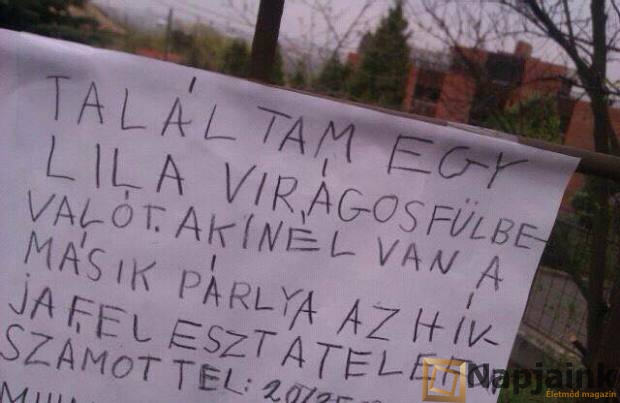 TALÁLTAM EGY
LILA VIRÁGOSFÜLBE-
VALÓT. AKINÉL VAN A
MÁSIK PÁRLYA AZ HÍV-
JAFEL ESZTATELEF
SZÁMOT TEL: 20/
Napjaink
Életmód magazin